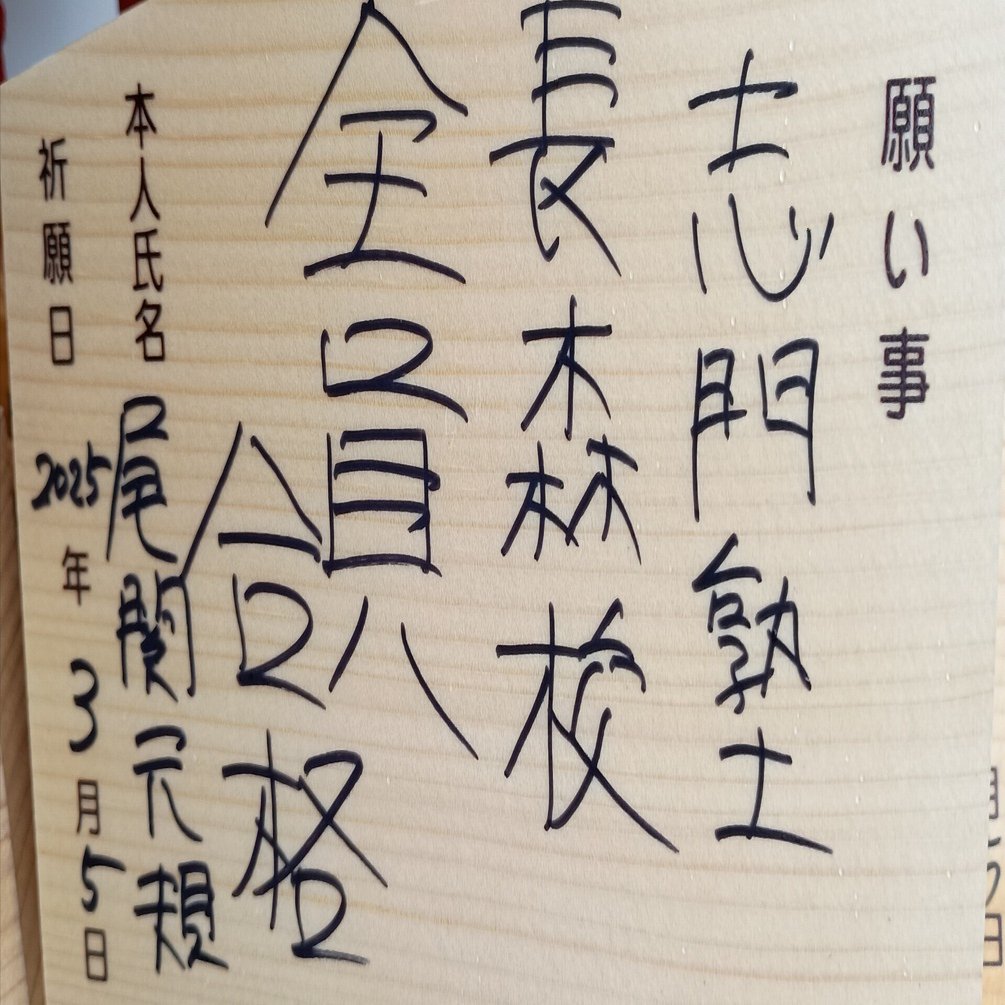 願い事
志門塾士
長森校
全員
合格
本人氏名 尾関元規
祈願日 2025年3月5日